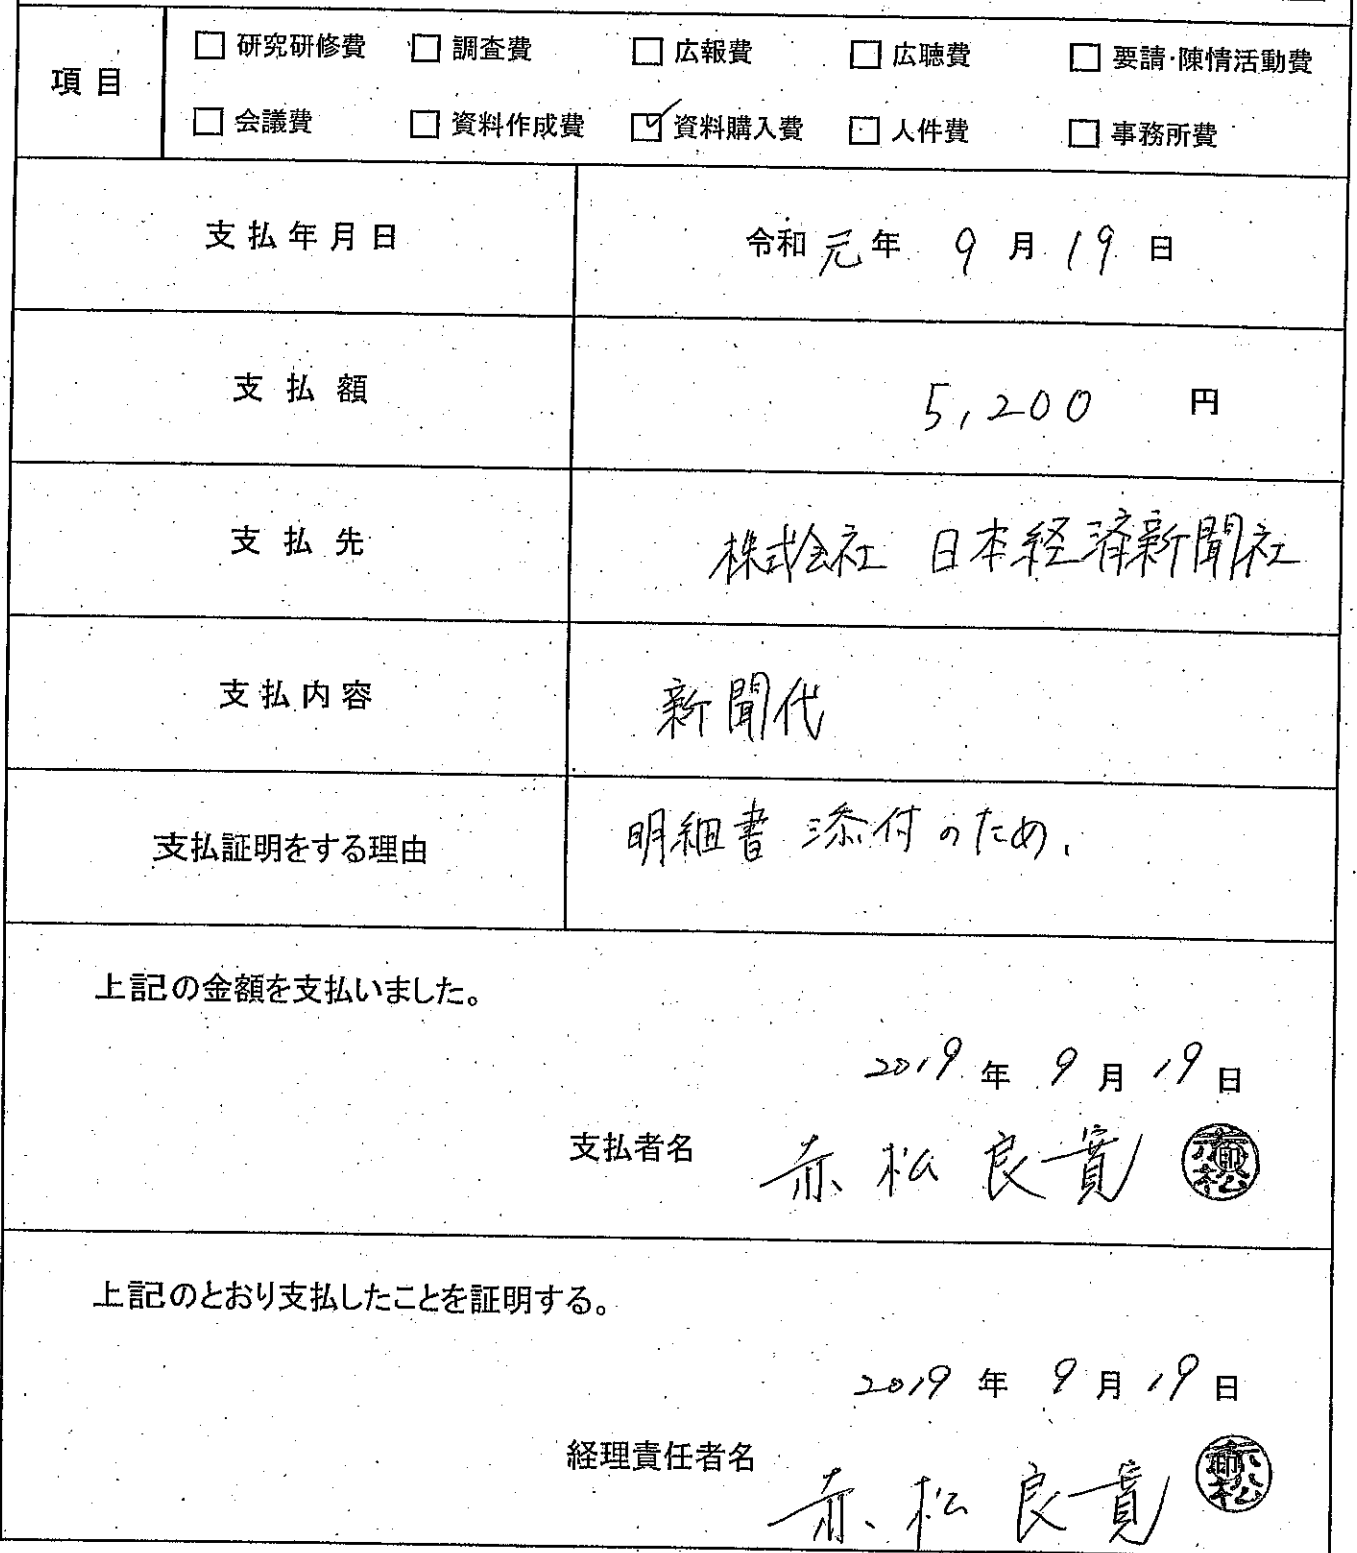 項目
□ 研究研修費 □ 調査費 □ 広報費 □ 広聴費 □ 要請・陳情活動費
□ 会議費 □ 資料作成費 ☑ 資料購入費 □ 人件費 □ 事務所費
支払年月日 令和元年 9月19日
支払額 5,200 円
支払先 株式会社 日本経済新聞社
支払内容 新聞代
支払証明をする理由 明細書添付のため.
上記の金額を支払いました。
2019年 9月 19日
支払者名 赤松良寛
上記のとおり支払したことを証明する。
2019年 9月 19日
経理責任者名 赤松良寛